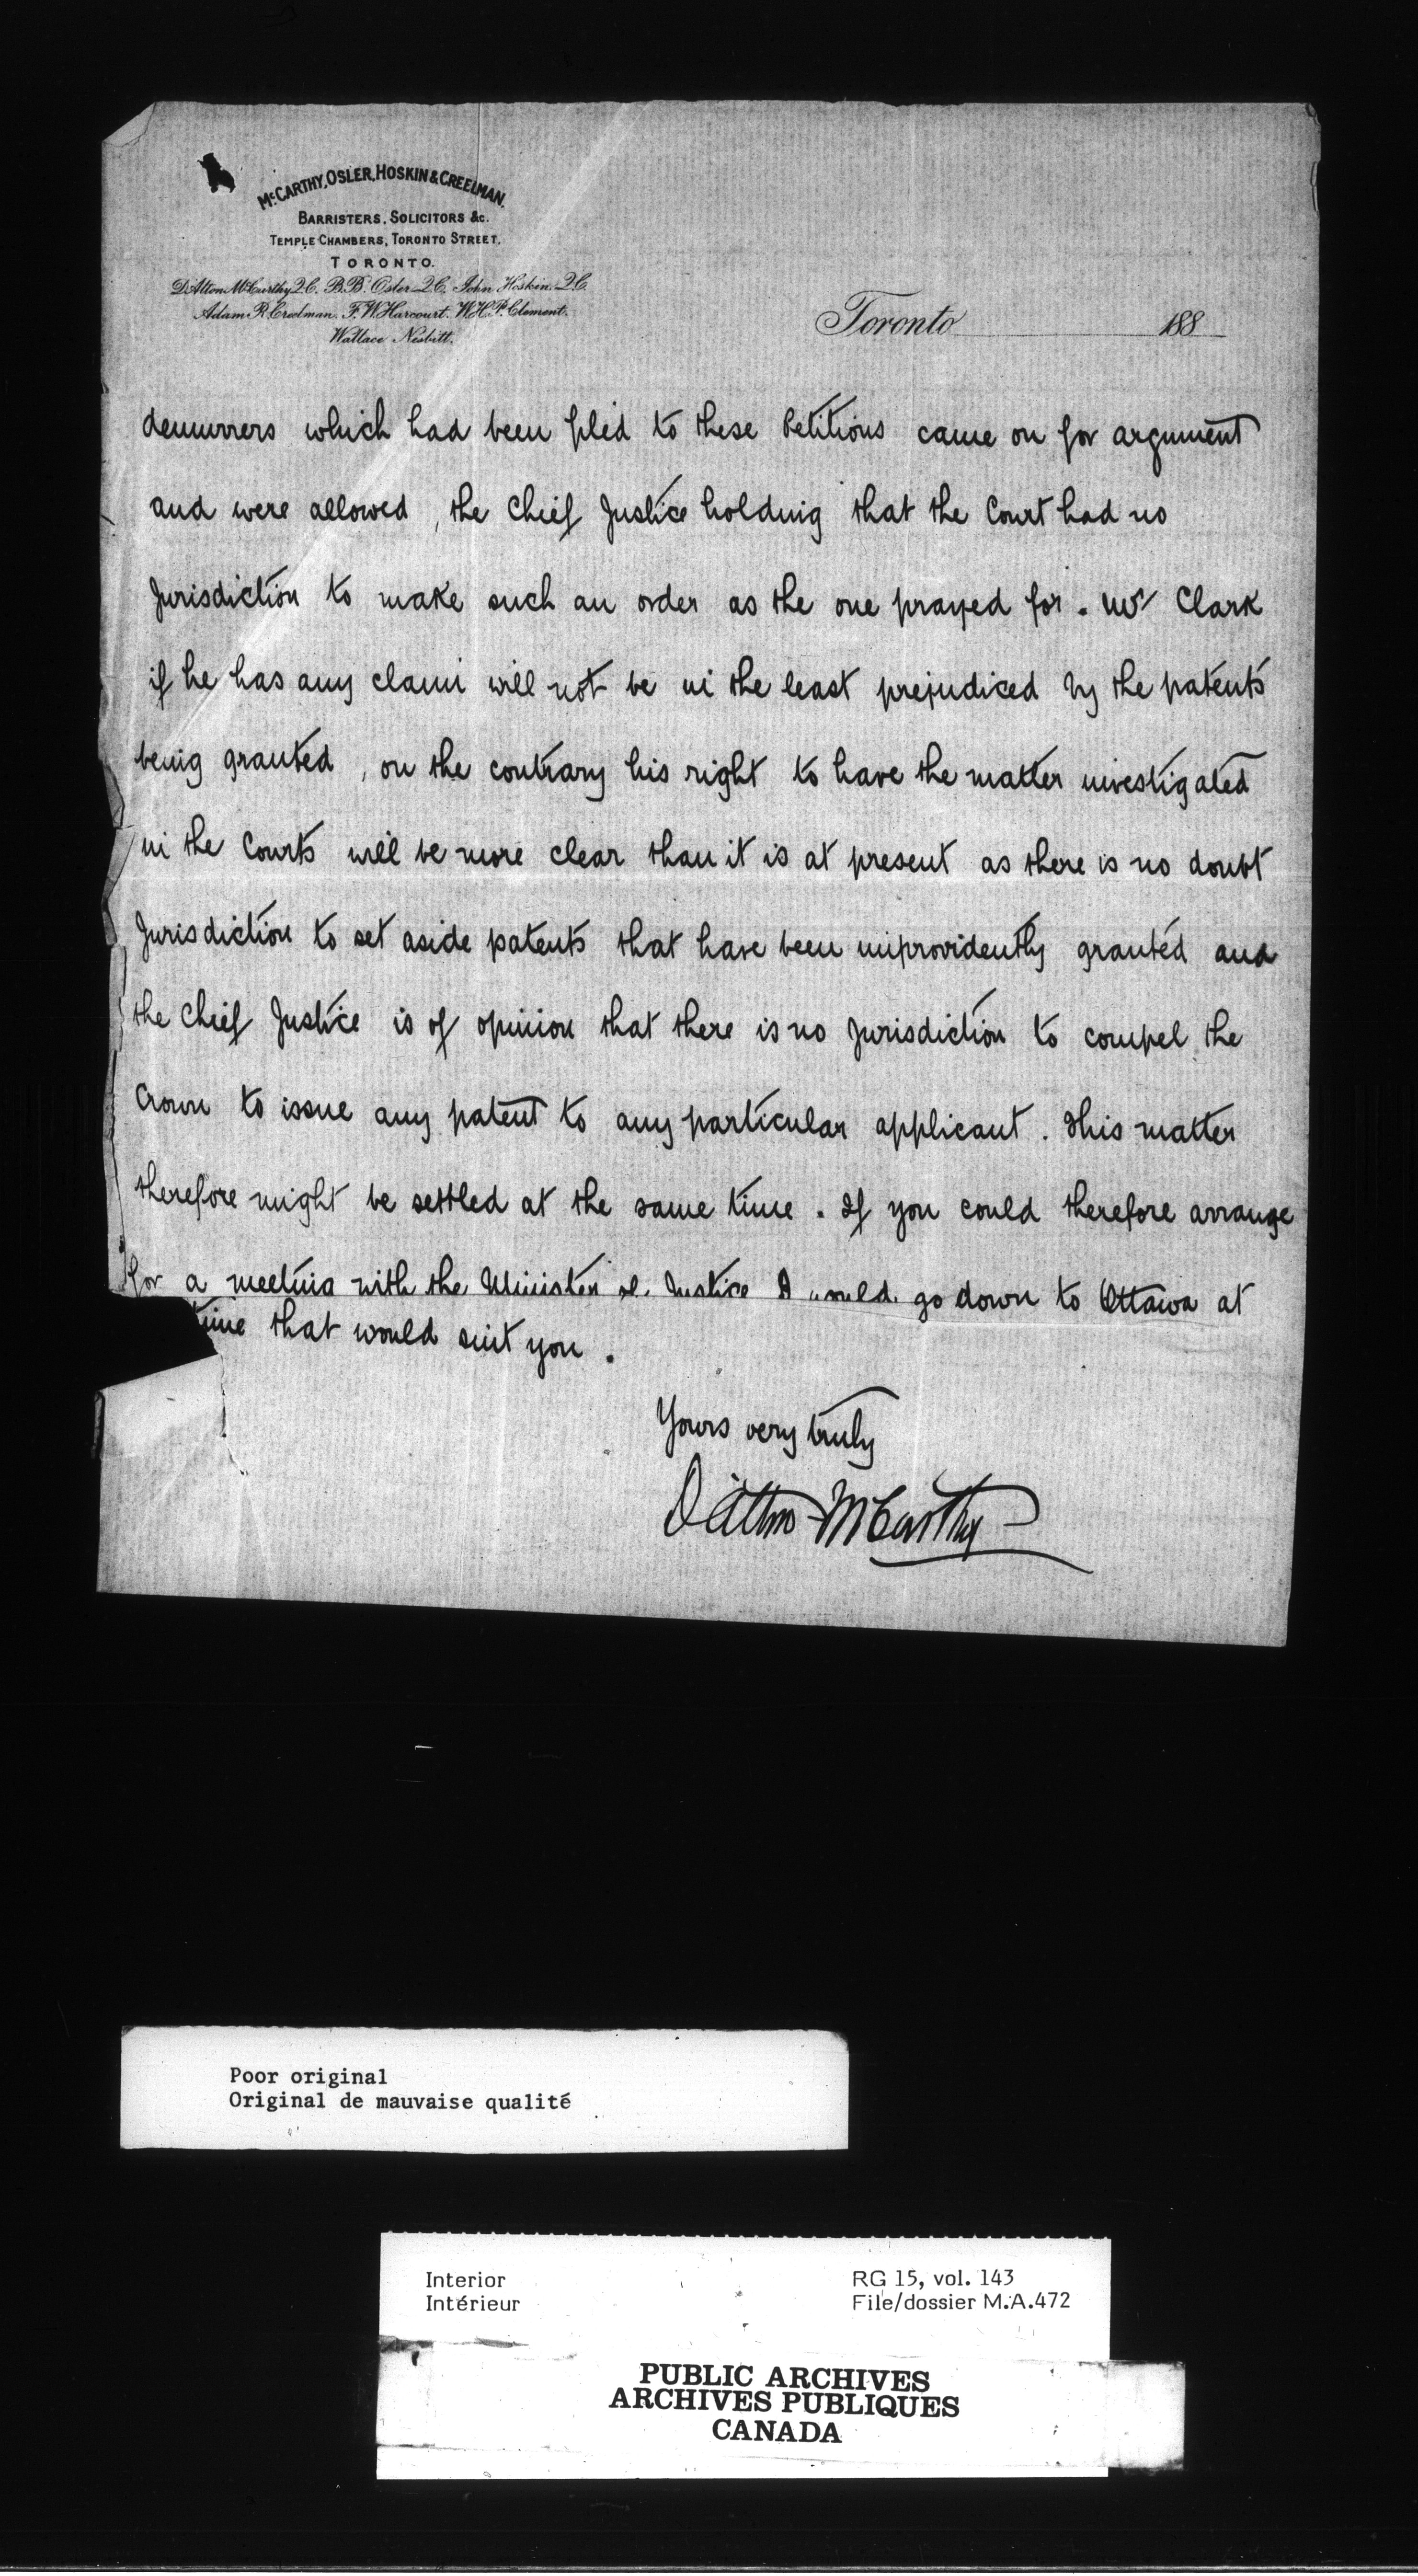 McCARTHY, OSLER, HOSKIN & CREELMAN.
BARRISTERS, SOLICITORS &c.
TEMPLE CHAMBERS, TORONTO STREET,
TORONTO.
D'Alton McCarthy Q.C. B.B. Osler Q.C. John Hoskin. Q.C.
Adam R. Creelman. F.W. Harcourt. W.H.P. Clement.
Wallace Nesbitt.
Toronto 188
demurrers which had been filed to these Petitions came on for argument
and were allowed, the Chief Justice holding that the Court had no
Jurisdiction to make such an order as the one prayed for. Mr Clark
if he has any claim will not be in the least prejudiced by the patents
being granted, on the contrary his right to have the matter investigated
in the Courts will be more clear than it is at present as there is no doubt
Jurisdiction to set aside patents that have been improvidently granted and
the Chief Justice is of opinion that there is no Jurisdiction to compel the
Crown to issue any patent to any particular applicant. This matter
therefore might be settled at the same time. If you could therefore arrange
for a meeting with the Minister of Justice I would go down to Ottawa at
time that would suit you.
Yours very truly
D'Alton McCarthy
Poor original
Original de mauvaise qualité
Interior
Intérieur
RG 15, vol. 143
File/dossier M.A.472
PUBLIC ARCHIVES
ARCHIVES PUBLIQUES
CANADA